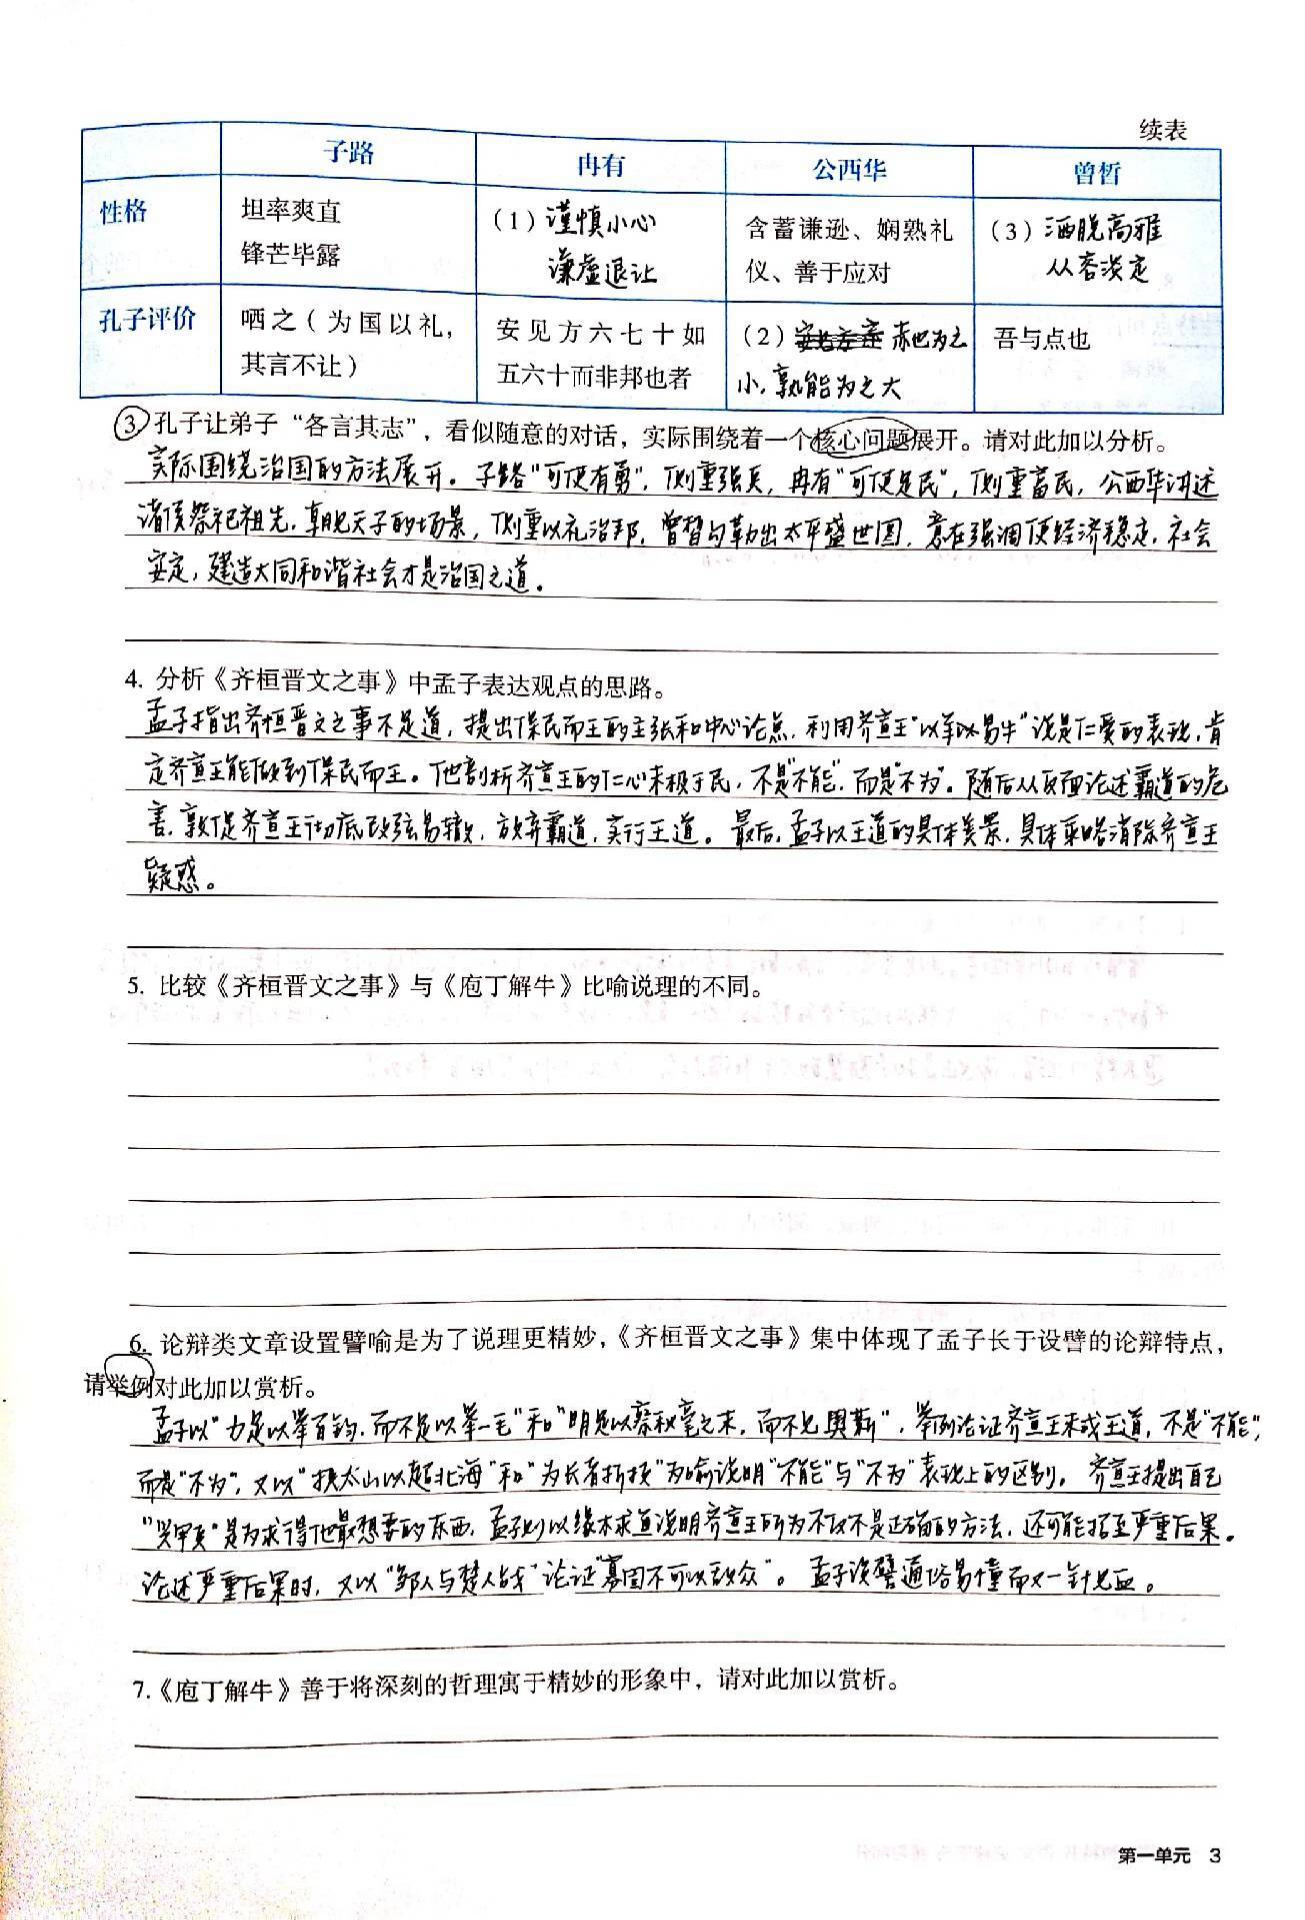 续表
子路 冉有 公西华 曾皙
性格 坦率爽直 (1)谨慎小心 含蓄谦逊、娴熟礼 (3)洒脱高雅
锋芒毕露 谦虚退让 仪、善于应对 从容淡定
孔子评价 哂之(为国以礼, 安见方六七十如 (2) 赤也为之 吾与点也
其言不让) 五六十而非邦也者 小,孰能为之大
③孔子让弟子“各言其志”,看似随意的对话,实际围绕着一个核心问题展开。请对此加以分析。
实际围绕治国的方法展开。子路“可使有勇”,侧重强兵,冉有“可使足民”,侧重富民,公西华讲述
诸侯祭祀祖先,朝见天子的场景,侧重以礼治邦,曾皙勾勒出太平盛世图,意在强调使经济稳定,社会
安定,建造大同和谐社会才是治国之道。
4. 分析《齐桓晋文之事》中孟子表达观点的思路。
孟子指出齐桓晋文之事不足道,提出保民而王的主张和中心论点,利用齐宣王“以羊以易牛”说是仁爱的表现,肯
定齐宣王能做到保民而王。他剖析齐宣王的仁心未极于民,不是“不能”,而是“不为”。随后从反面论述霸道的危
害,敦促齐宣王彻底改弦易辙,放弃霸道,实行王道。最后,孟子以王道的具体美景,具体策略消除齐宣王
疑惑。
5. 比较《齐桓晋文之事》与《庖丁解牛》比喻说理的不同。
6. 论辩类文章设置譬喻是为了说理更精妙,《齐桓晋文之事》集中体现了孟子长于设譬的论辩特点,
请举例对此加以赏析。
孟子以“力足以举百钧,而不足以举一毛”和“明足以察秋毫之末,而不见舆薪”,举例论证齐宣王未成王道,不是“不能”,
而是“不为”,又以“挟太山以超北海”和“为长者折枝”为喻说明“不能”与“不为”表现上的区别。齐宣王提出自己
“兴甲兵”是为求得他最想要的东西,孟子则以缘木求鱼说明齐宣王所为不仅不是正确的方法,还可能招至严重后果。
论述严重后果时,又以“邹人与楚人战”论证“寡固不可以敌众”。孟子设譬通俗易懂而又一针见血。
7.《庖丁解牛》善于将深刻的哲理寓于精妙的形象中,请对此加以赏析。
第一单元 3